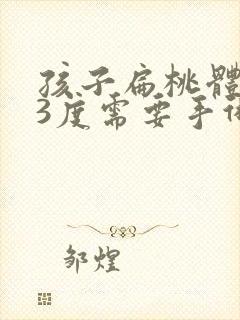 孩子扁桃體
3度需要手術
邹煌